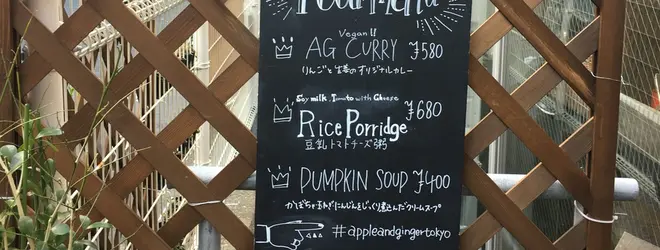 Menu
Vegan!!
AG CURRY ¥580
りんごと生姜のオリジナルカレー
Soy milk, Tomato with Cheese
Rice Porridge ¥680
豆乳トマトチーズ粥
PUMPKIN SOUP ¥400
かぼちゃ玉ねぎにんじんをじっくり煮込んだクリームスープ
#appleandgingertokyo